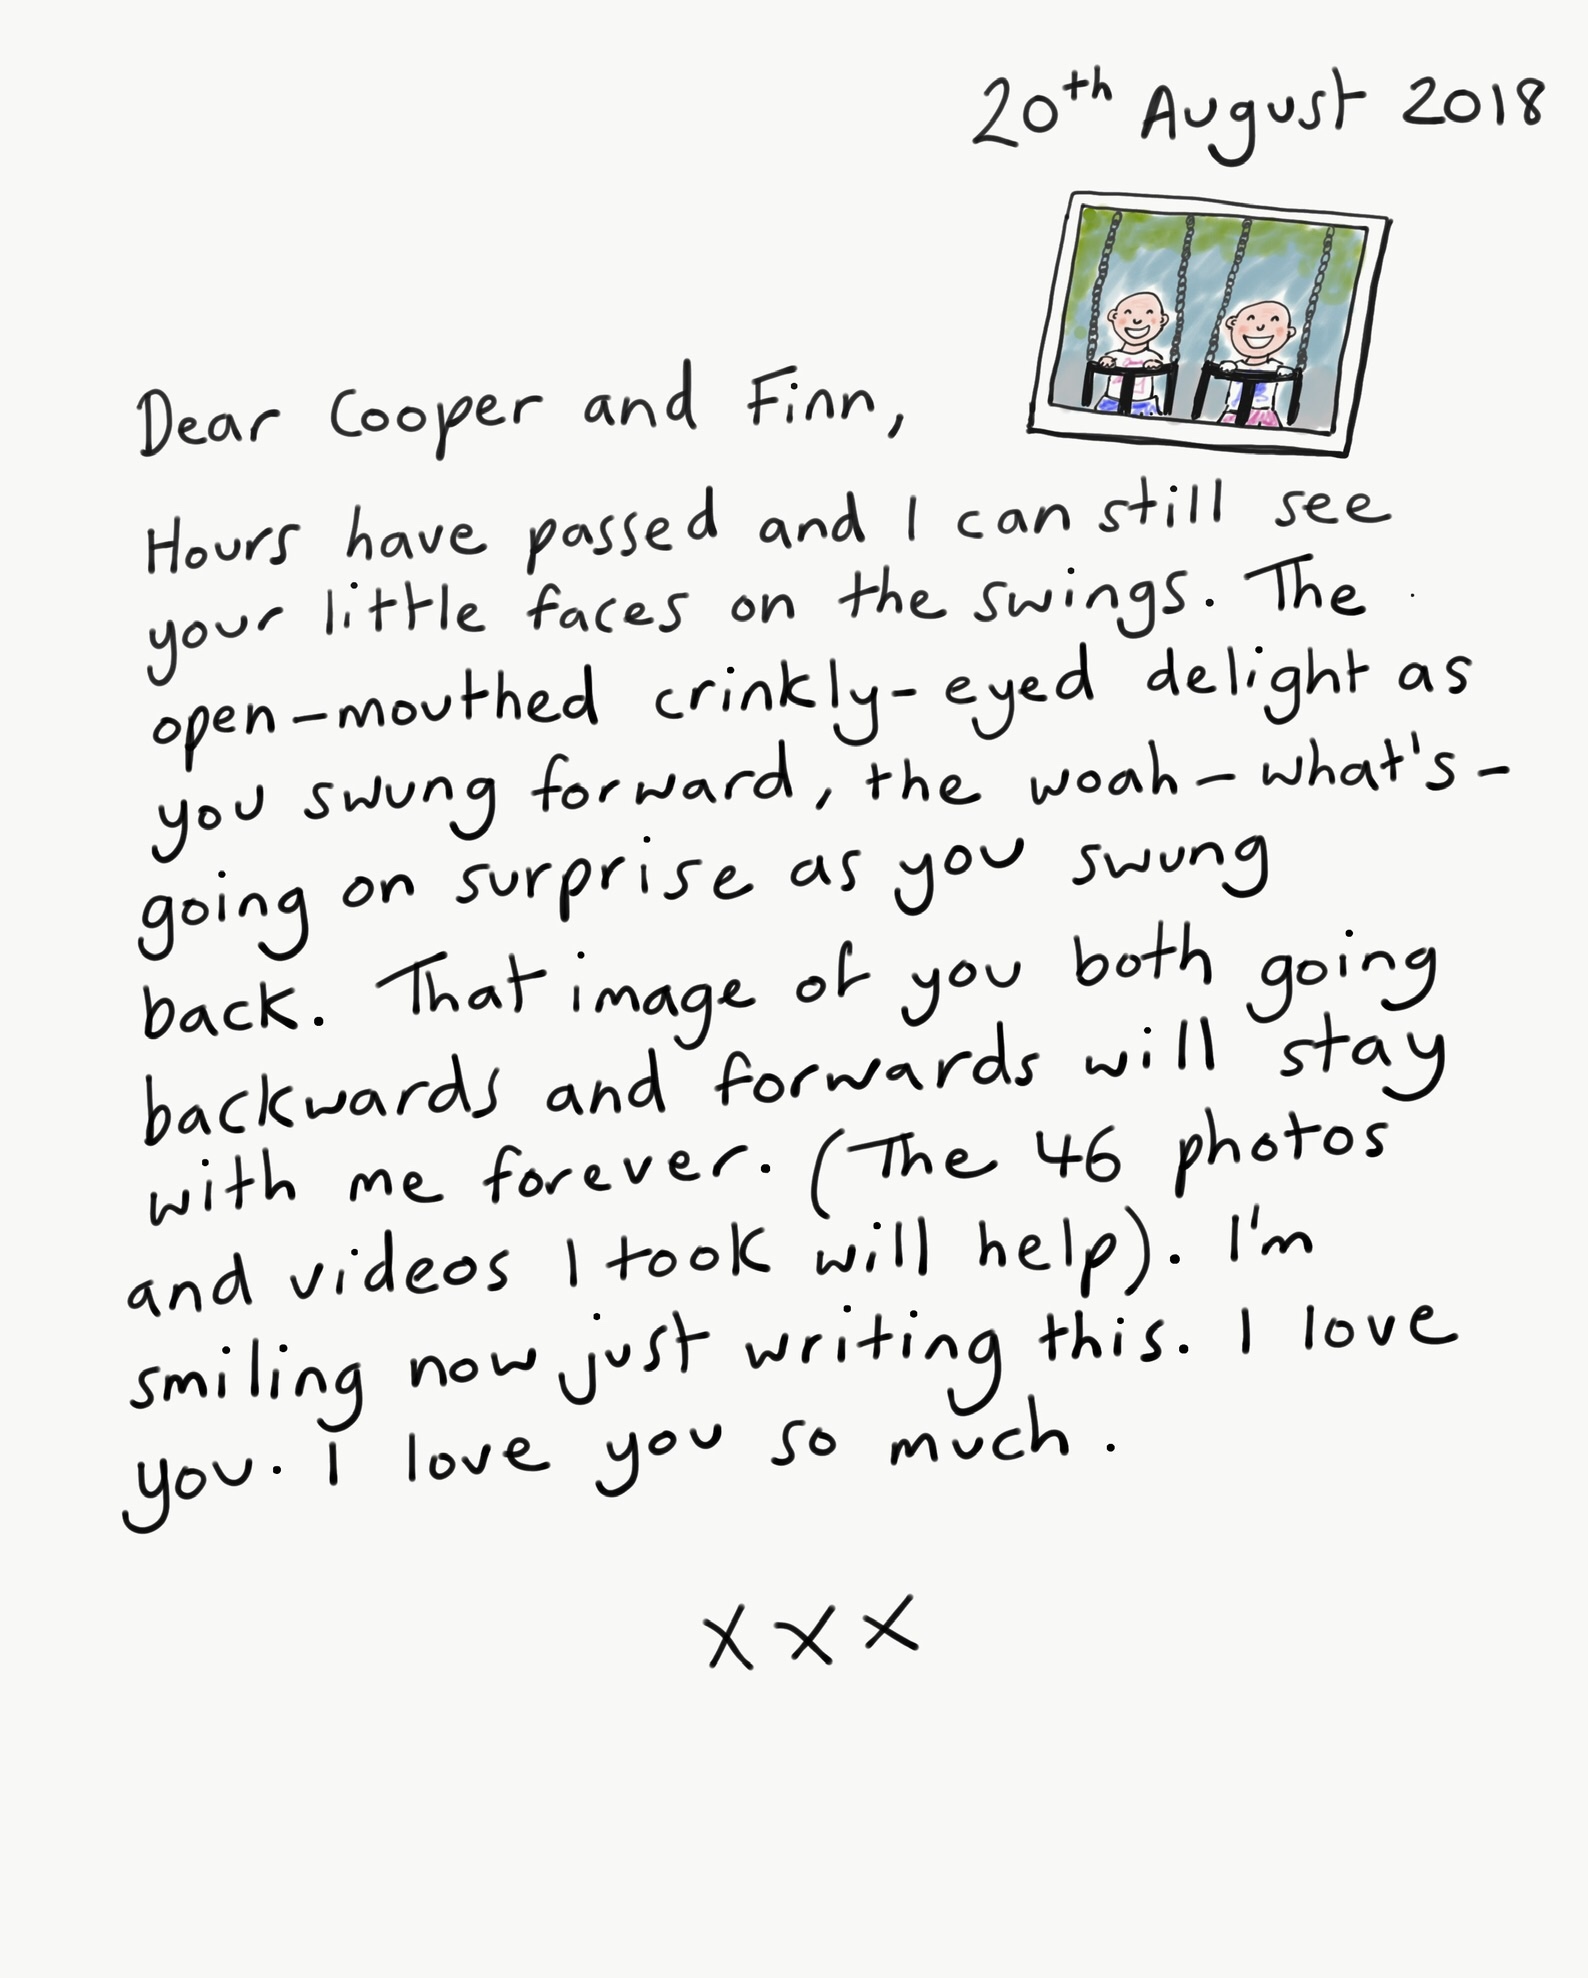 20th August 2018
Dear Cooper and Finn,
Hours have passed and I can still see
your little faces on the swings. The
open-mouthed crinkly-eyed delight as
you swung forward, the woah-what's-
going on surprise as you swung
back. That image of you both going
backwards and forwards will stay
with me forever. (The 46 photos
and videos I took will help). I'm
smiling now just writing this. I love
you. I love you so much.
xxx